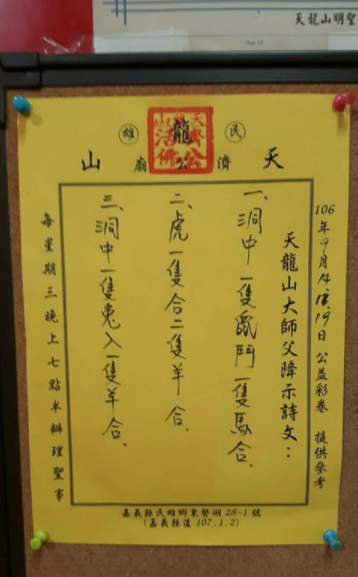 天龍山明聖
民 龍 雄
天 濟公廟 山
106年9月 19日 公益彩卷 提供參考
天龍山大師父降示詩文：
一、洞中一隻鼠鬥一隻馬合、
二、虎一隻合二隻羊合、
三、洞中一隻兔入一隻羊合、
每星期三晚上七點半辦理聖事
嘉義縣民雄鄉東勢湖28-1號
(嘉義縣道107.1.2)